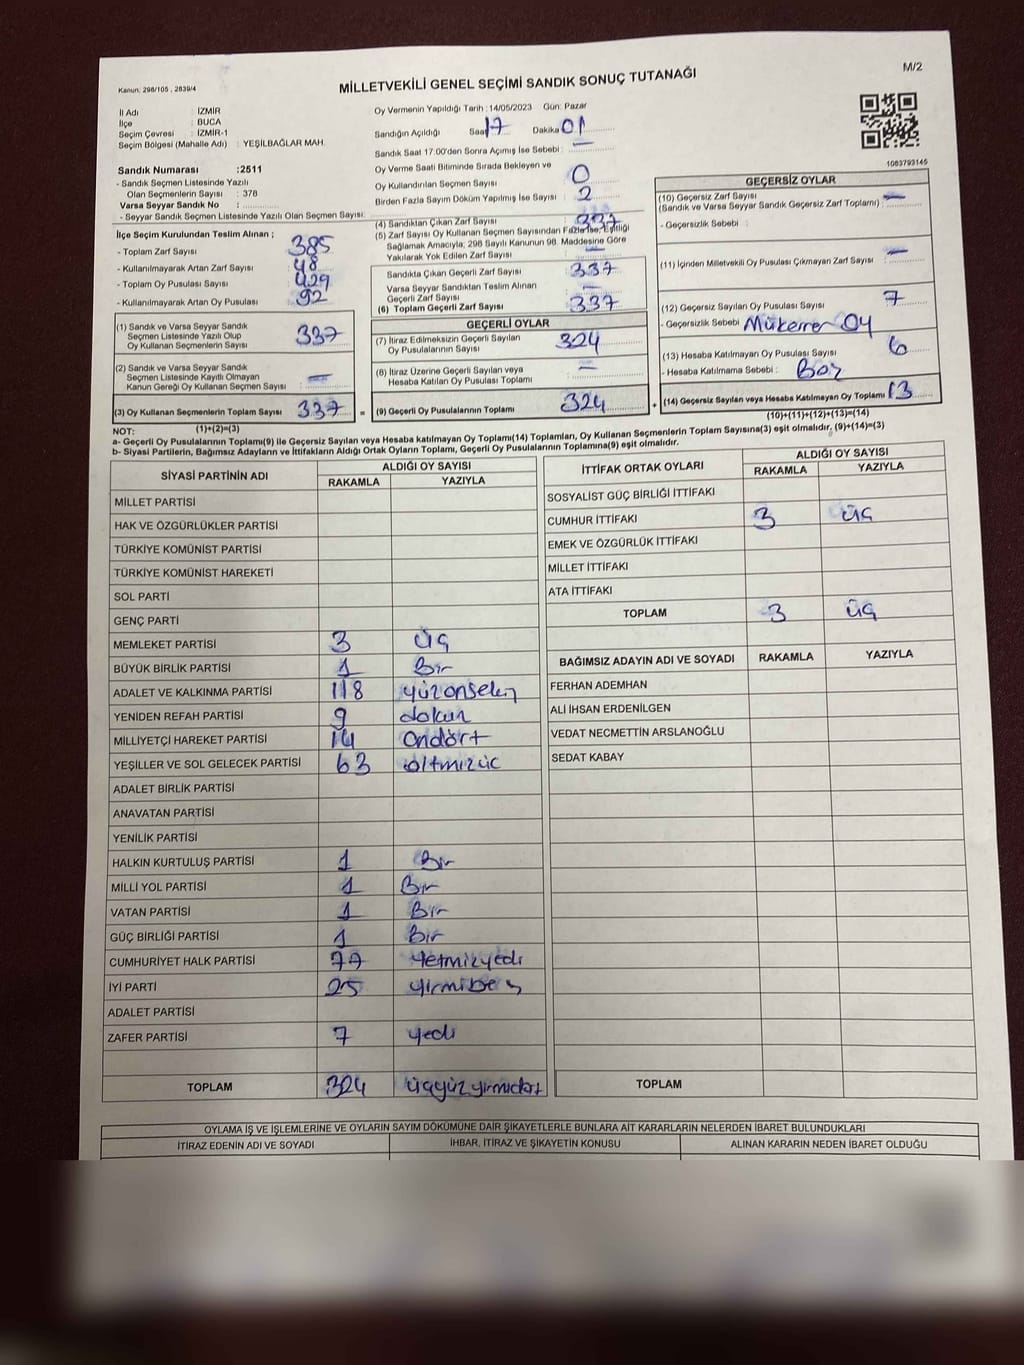 Kanun: 298/105 , 2839/4
MİLLETVEKİLİ GENEL SEÇİMİ SANDIK SONUÇ TUTANAĞI
M/2
İl Adı : İZMİR
İlçe : BUCA
Seçim Çevresi : İZMİR-1
Seçim Bölgesi (Mahalle Adı) : YEŞİLBAĞLAR MAH.
Sandık Numarası :2511
- Sandık Seçmen Listesinde Yazılı
Olan Seçmenlerin Sayısı : 378
Varsa Seyyar Sandık No :
- Seyyar Sandık Seçmen Listesinde Yazılı Olan Seçmen Sayısı:
Oy Vermenin Yapıldığı Tarih :14/05/2023 Gün: Pazar
Sandığın Açıldığı Saat 17 Dakika 01
Sandık Saat 17.00'den Sonra Açımış İse Sebebi : —
Oy Verme Saati Bitiminde Sırada Bekleyen ve
Oy Kullandırılan Seçmen Sayısı 0
Birden Fazla Sayım Döküm Yapılmış İse Sayısı 2
1083793145
İlçe Seçim Kurulundan Teslim Alınan ;
- Toplam Zarf Sayısı 385
- Kullanılmayarak Artan Zarf Sayısı 48
- Toplam Oy Pusulası Sayısı 429
- Kullanılmayarak Artan Oy Pusulası 92
(1) Sandık ve Varsa Seyyar Sandık
Seçmen Listesinde Yazılı Olup
Oy Kullanan Seçmenlerin Sayısı 337
(2) Sandık ve Varsa Seyyar Sandık
Seçmen Listesinde Kayıtlı Olmayan
Kanun Gereği Oy Kullanan Seçmen Sayısı : —
(3) Oy Kullanan Seçmenlerin Toplam Sayısı 337 =
(1)+(2)=(3)
(4) Sandıktan Çıkan Zarf Sayısı 337
(5) Zarf Sayısı Oy Kullanan Seçmen Sayısından Fazla İse, Eşitliği
Sağlamak Amacıyla, 298 Sayılı Kanunun 98. Maddesine Göre
Yakılarak Yok Edilen Zarf Sayısı —
Sandıkta Çıkan Geçerli Zarf Sayısı 337
Varsa Seyyar Sandıktan Teslim Alınan
Geçerli Zarf Sayısı —
(6) Toplam Geçerli Zarf Sayısı 337
GEÇERLİ OYLAR
(7) İtiraz Edilmeksizin Geçerli Sayılan
Oy Pusulalarının Sayısı 324
(8) İtiraz Üzerine Geçerli Sayılan veya
Hesaba Katılan Oy Pusulası Toplamı —
(9) Geçerli Oy Pusulalarının Toplamı 324 +
GEÇERSİZ OYLAR
(10) Geçersiz Zarf Sayısı
(Sandık ve Varsa Seyyar Sandık Geçersiz Zarf Toplamı) : —
- Geçersizlik Sebebi :
(11) İçinden Milletvekili Oy Pusulası Çıkmayan Zarf Sayısı —
(12) Geçersiz Sayılan Oy Pusulası Sayısı 7
- Geçersizlik Sebebi Mükerrer Oy
(13) Hesaba Katılmayan Oy Pusulası Sayısı 6
- Hesaba Katılmama Sebebi : Boş
(14) Geçersiz Sayılan veya Hesaba Katılmayan Oy Toplamı 13
(10)+(11)+(12)+(13)=(14)
NOT:
a- Geçerli Oy Pusulalarının Toplamı(9) ile Geçersiz Sayılan veya Hesaba katılmayan Oy Toplamı(14) Toplamları, Oy Kullanan Seçmenlerin Toplam Sayısına(3) eşit olmalıdır. (9)+(14)=(3)
b- Siyasi Partilerin, Bağımsız Adayların ve İttifakların Aldığı Ortak Oyların Toplamı, Geçerli Oy Pusulalarının Toplamına(9) eşit olmalıdır.
SİYASİ PARTİNİN ADI ALDIĞI OY SAYISI
RAKAMLA YAZIYLA
MİLLET PARTİSİ
HAK VE ÖZGÜRLÜKLER PARTİSİ
TÜRKİYE KOMÜNİST PARTİSİ
TÜRKİYE KOMÜNİST HAREKETİ
SOL PARTİ
GENÇ PARTİ
MEMLEKET PARTİSİ 3 üç
BÜYÜK BİRLİK PARTİSİ 1 Bir
ADALET VE KALKINMA PARTİSİ 118 yüzonsekiz
YENİDEN REFAH PARTİSİ 9 dokuz
MİLLİYETÇİ HAREKET PARTİSİ 14 Ondört
YEŞİLLER VE SOL GELECEK PARTİSİ 63 altmızüç
ADALET BİRLİK PARTİSİ
ANAVATAN PARTİSİ
YENİLİK PARTİSİ
HALKIN KURTULUŞ PARTİSİ 1 Bir
MİLLİ YOL PARTİSİ 1 Bir
VATAN PARTİSİ 1 Bir
GÜÇ BİRLİĞİ PARTİSİ 1 Bir
CUMHURİYET HALK PARTİSİ 77 Yetmizyedi
İYİ PARTİ 25 yirmibeş
ADALET PARTİSİ
ZAFER PARTİSİ 7 yedi
TOPLAM 324 üçyüzyirmidört
İTTİFAK ORTAK OYLARI ALDIĞI OY SAYISI
RAKAMLA YAZIYLA
SOSYALİST GÜÇ BİRLİĞİ İTTİFAKI
CUMHUR İTTİFAKI 3 üç
EMEK VE ÖZGÜRLÜK İTTİFAKI
MİLLET İTTİFAKI
ATA İTTİFAKI
TOPLAM 3 üç
BAĞIMSIZ ADAYIN ADI VE SOYADI RAKAMLA YAZIYLA
FERHAN ADEMHAN
ALİ İHSAN ERDENİLGEN
VEDAT NECMETTİN ARSLANOĞLU
SEDAT KABAY
TOPLAM
OYLAMA İŞ VE İŞLEMLERİNE VE OYLARIN SAYIM DÖKÜMÜNE DAİR ŞİKAYETLERLE BUNLARA AİT KARARLARIN NELERDEN İBARET BULUNDUKLARI
İTİRAZ EDENİN ADI VE SOYADI İHBAR, İTİRAZ VE ŞİKAYETİN KONUSU ALINAN KARARIN NEDEN İBARET OLDUĞU